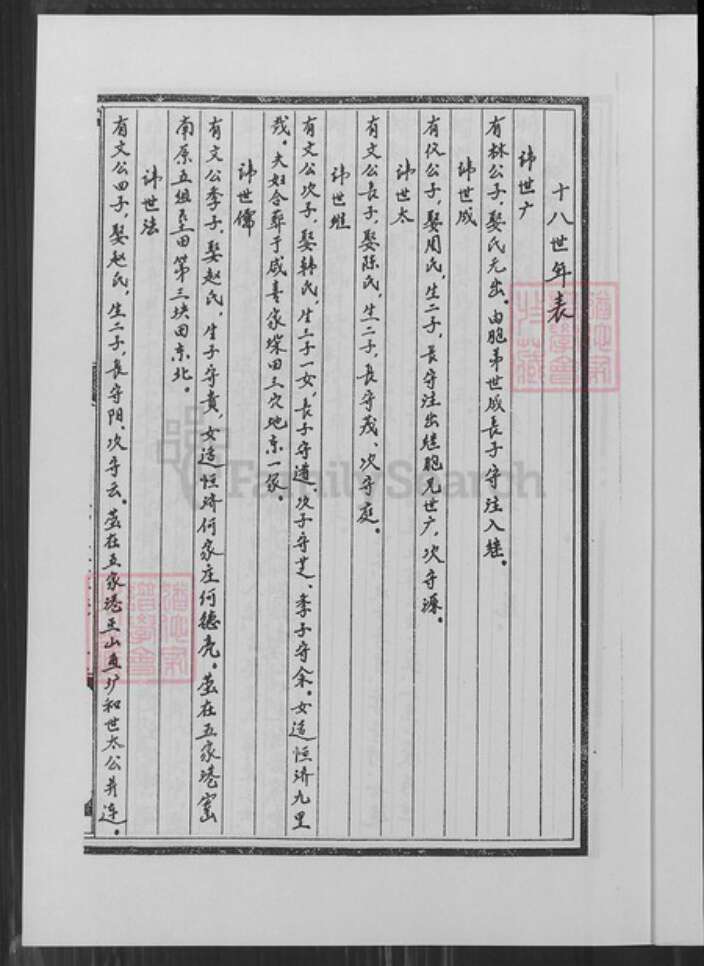 十八世年表
讳世广
有林公子,娶氏无出。由胞弟世成长子守注入继。
讳世成
有仪公子,娶周氏,生二子,长守注出继胞兄世广,次守源。
讳世太
有文公长子,娶陈氏,生二子,长守茂、次守庭。
讳世继
有文公次子,娶韩氏,生三子一女,长子守道、次子守芝、季子守余。女适恒济九里
我。夫妇合葬于咸喜家垛田三穴地东一冢。
讳世儒
有文公季子,娶赵氏,生子守贵,女适恒济何家庄何德亮。茔在五家港窑
南原五组垦田第三块田东北。
讳世法
有文公四子,娶赵氏,生二子,长守阳、次守云。茔在五家港亚山直圹和世太公并连。
FamilySearch